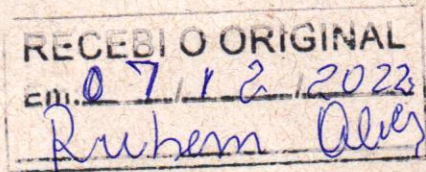 RECEBI O ORIGINAL
Em. 07/12/2022
Rubem Alves